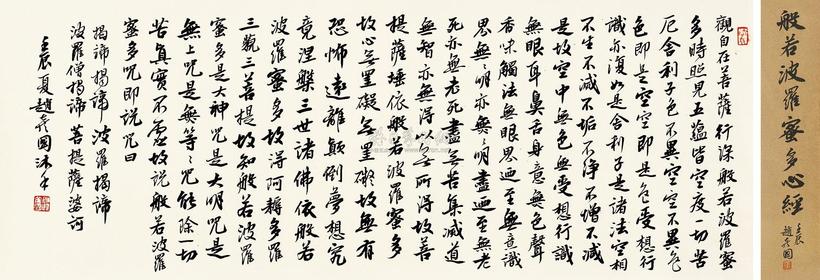 般若波羅蜜多心經
壬辰
趙彥國
觀自在菩薩行深般若波羅蜜
多時照見五蘊皆空度一切苦
厄舍利子色不異空空不異色
色即是空空即是色受想行
識亦復如是舍利子是諸法空相
不生不滅不垢不淨不增不減
是故空中無色無受想行識
無眼耳鼻舌身意無色聲
香味觸法無眼界乃至無意識
界無〻明亦無〻明盡乃至無老
死亦無老死盡無苦集滅道
無智亦無得以無所得故菩
提薩埵依般若波羅蜜多
故心無罣礙無罣礙故無有
恐怖遠離顛倒夢想究
竟涅槃三世諸佛依般若
波羅蜜多故得阿耨多羅
三藐三菩提故知般若波羅
蜜多是大神咒是大明咒是
無上咒是無等〻咒能除一切
苦真實不虛故說般若波羅
蜜多咒即說咒曰
揭諦揭諦波羅揭諦
波羅僧揭諦菩提薩婆訶
壬辰夏趙彥國沐手